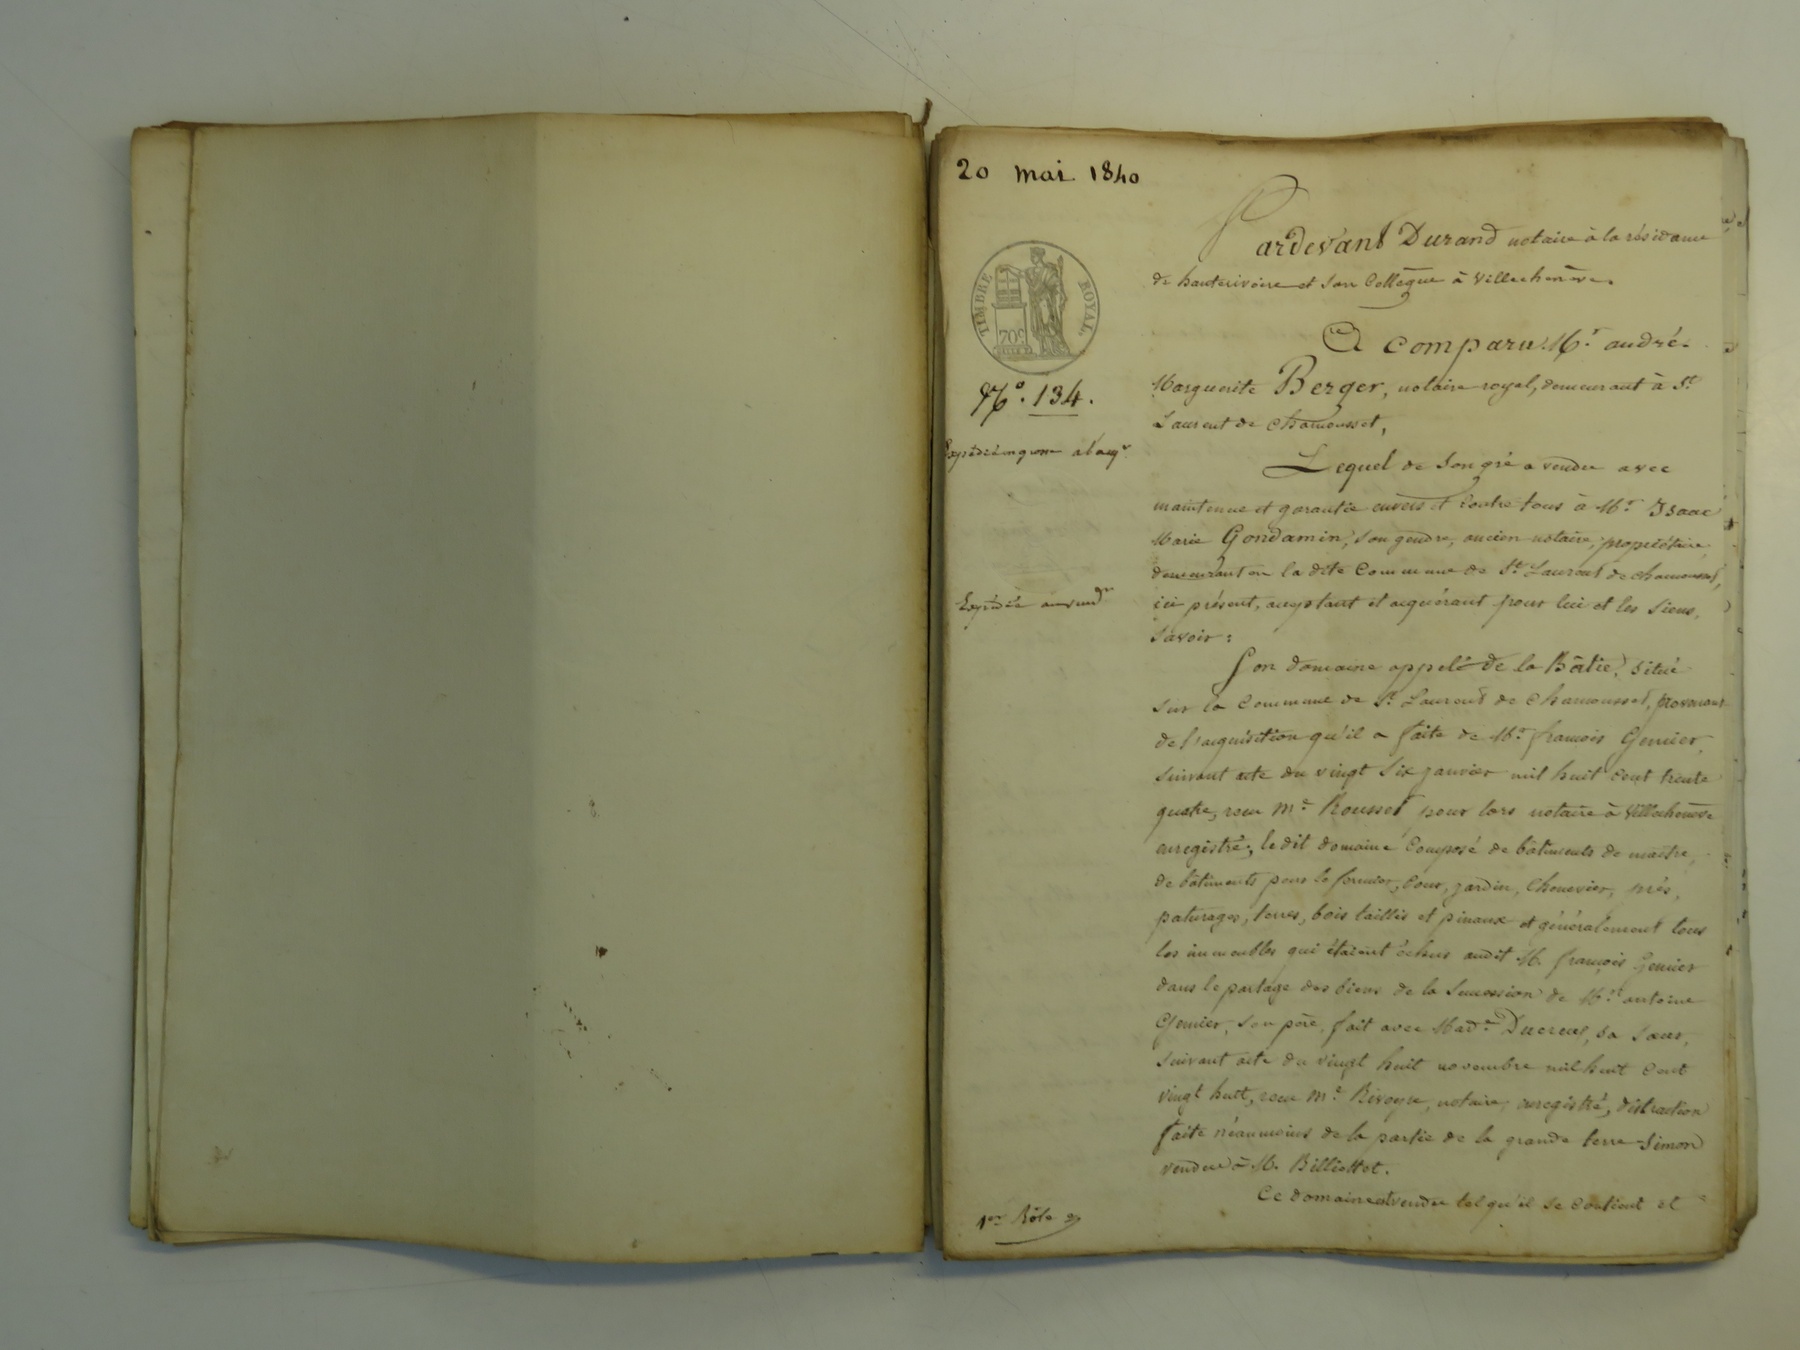 20 mai 1840
TIMBRE ROYAL.
70c
N.º 134.
Expédié en grosse à l'acqr
Expédié au vendr
Pardevant Durand notaire à la résidence
de hauterivoire et son Collègue à Villechenève.
A comparu Mr andré
Marguerite Berger, notaire royal, demeurant à St
Laurent de chamousset,
Lequel de son gré a vendu avec
maintenue et garantie envers et Contre tous à Mr Isaac
Marie Gondamin, son gendre, ancien notaire, propriétaire,
demeurant en la dite Commune de St Laurent de chamousset,
ici présent, acceptant et acquérant pour lui et les siens,
Savoir :
Son domaine appelé de la Bâtie, situé
sur la Commune de St Laurent de chamousset, provenant
de l'acquisition qu'il a faite de Mr françois Genier,
suivant acte du vingt six janvier mil huit cent trente
quatre, reçu Me Rousset pour lors notaire à Villechenève
enregistré; le dit domaine Composé de bâtiments de maître,
de bâtiments pour le fermier, Cour, jardin, Chenevier, prés,
paturages, terres, bois taillis et pinaux et généralement tous
les immeubles qui étaient échus audit M. françois Genier
dans le partage des biens de la Succession de Mr antoine
Genier, son père, fait avec Made Ducreux, sa sœur,
suivant acte du vingt huit novembre mil huit cent
vingt huit, reçu Me notaire, enregistré, distraction
faite néanmoins de la partie de la grande terre Simon
vendue à M. Billiottet.
Ce domaine est vendu tel qu'il se Contient et
1er Rôle